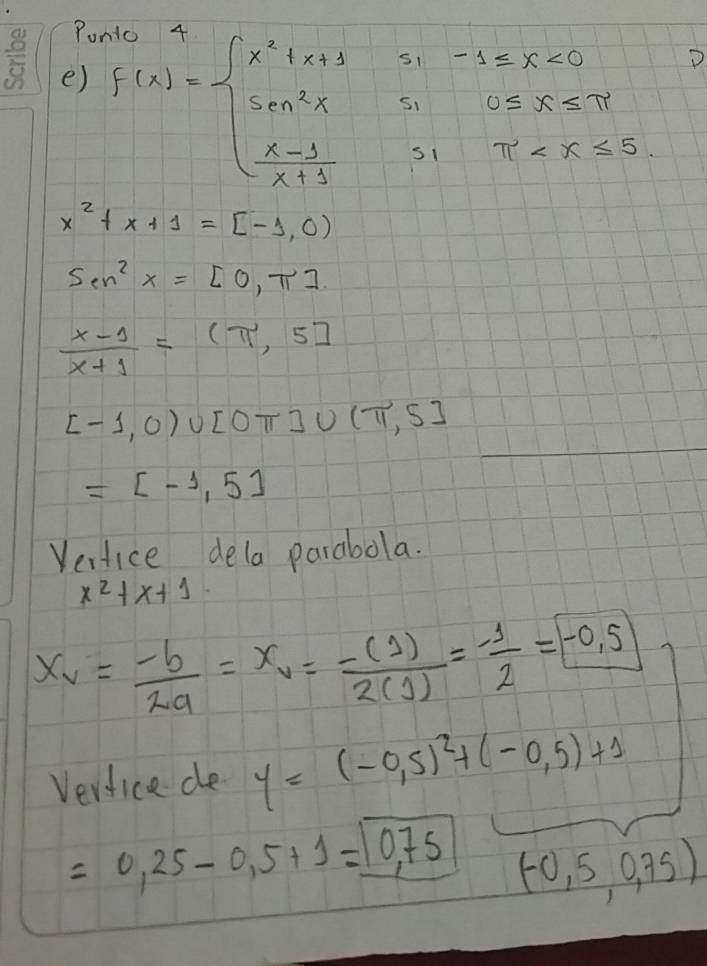 Scribe
Punto 4
e) f(x) = { x² + x + 1 si -1 ≤ x < 0
sen² x si 0 ≤ x ≤ π
(x - 1)/(x + 1) si π < x ≤ 5.
D
x² + x + 1 = [-1, 0)
Sen² x = [0, π].
(x - 1)/(x + 1) = (π, 5]
[-1, 0) ∪ [0 π] ∪ (π, 5]
= [-1, 5]
Vertice de la parabola.
x² + x + 1
Xv = -b/2a = Xv = -(1)/2(1) = -1/2 = -0,5
Vertice de y = (-0,5)² + (-0,5) + 1
= 0,25 - 0,5 + 1 = 0,75
(-0,5, 0,75)